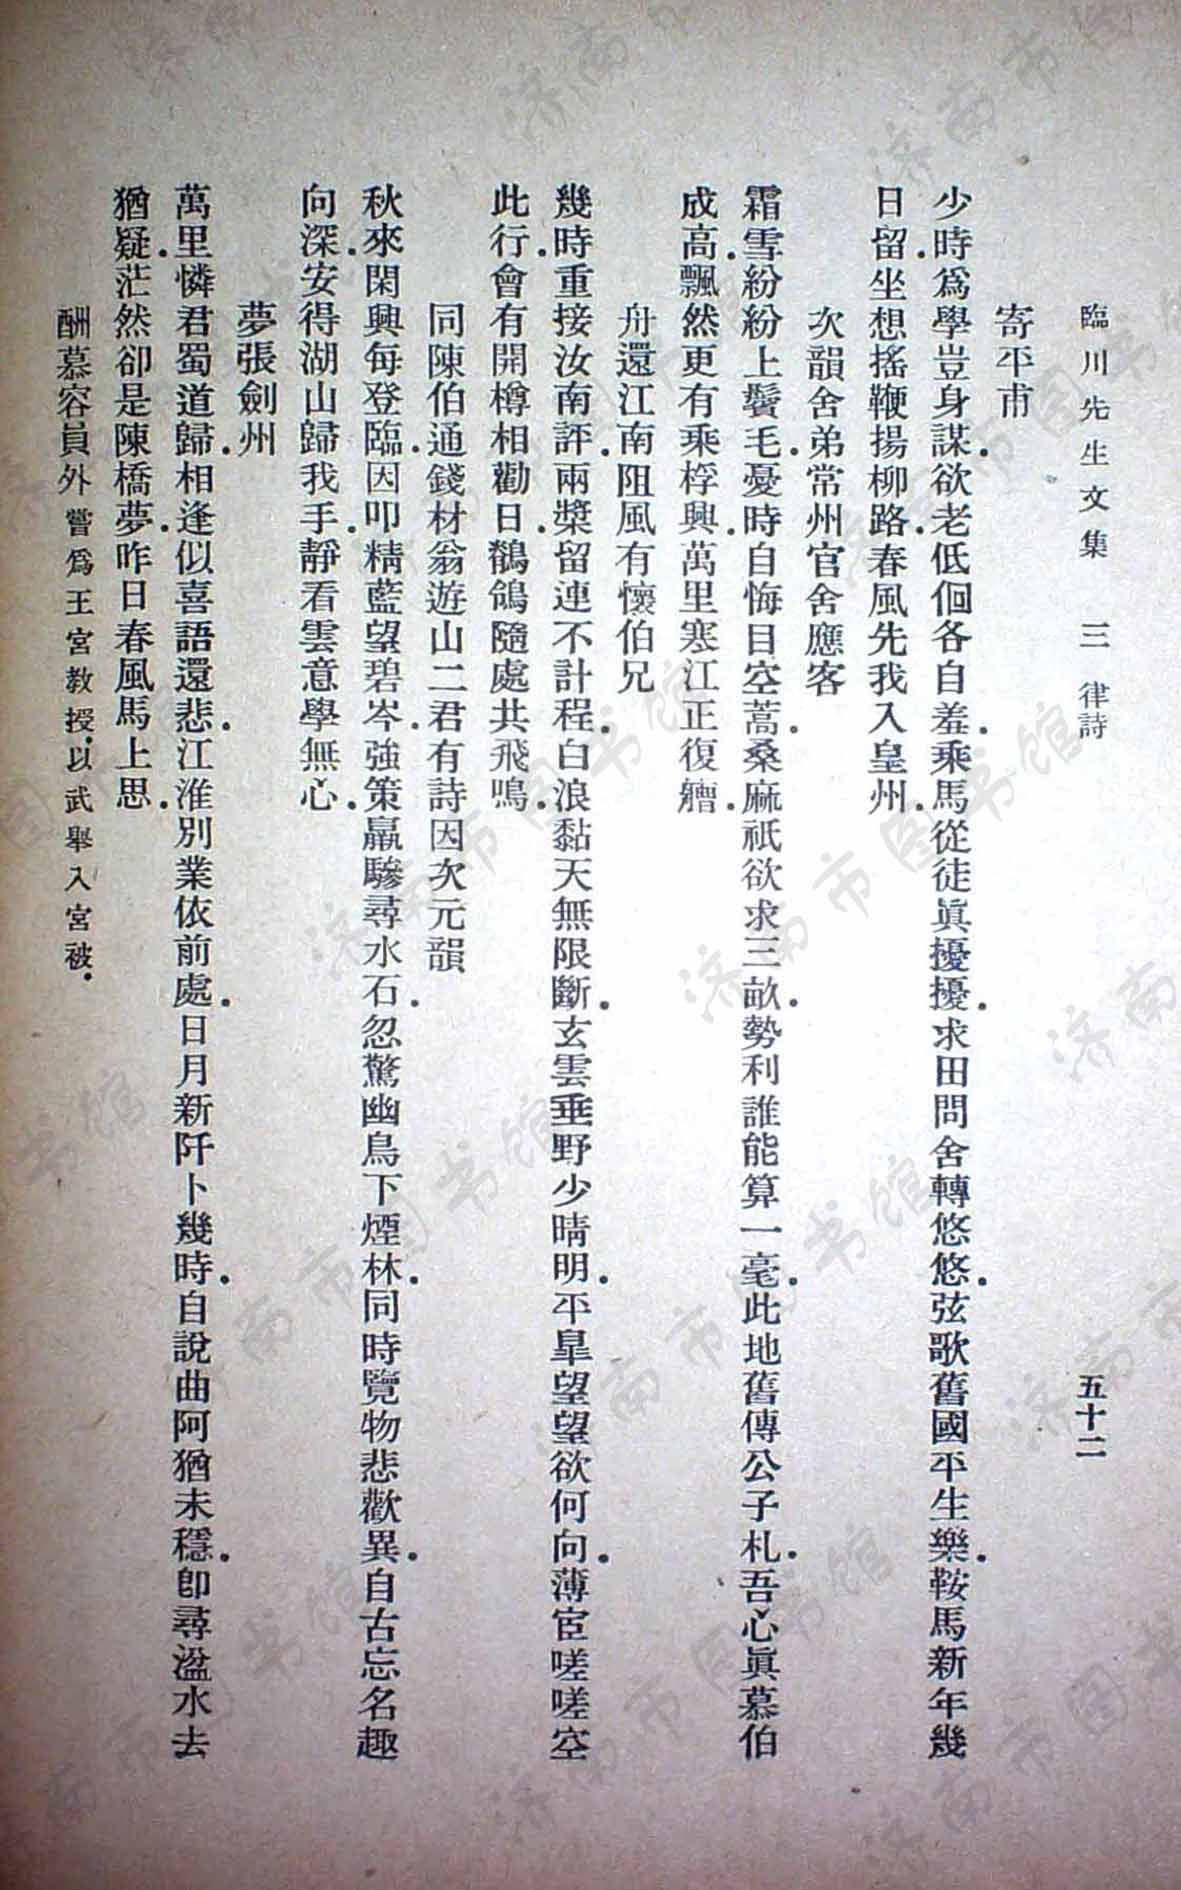 臨川先生文集　三　律詩　五十二
寄平甫
少時爲學豈身謀．欲老低佪各自羞．乘馬從徒眞擾擾．求田問舍轉悠悠．弦歌舊國平生樂．鞍馬新年幾
日留．坐想搖鞭揚柳路．春風先我入皇州．
次韻舍弟常州官舍應客
霜雪紛紛上鬢毛．憂時自悔目空蒿．桑麻祇欲求三畝．勢利誰能算一毫．此地舊傳公子札．吾心眞慕伯
成高．飄然更有乘桴興．萬里寒江正復艚．
舟還江南阻風有懷伯兄
幾時重接汝南評．兩槳留連不計程．白浪黏天無限斷．玄雲垂野少晴明．平臯望望欲何向．薄宦嗟嗟空
此行．會有開樽相勸日．鶺鴒隨處共飛鳴．
同陳伯通錢材翁遊山二君有詩因次元韻
秋來閑興每登臨．因叩精藍望碧岑．強策羸驂尋水石．忽驚幽鳥下煙林．同時覽物悲歡異．自古忘名趣
向深．安得湖山歸我手．靜看雲意學無心．
夢張劍州
萬里憐君蜀道歸．相逢似喜語還悲．江淮別業依前處．日月新阡卜幾時．自說曲阿猶未穩．卽尋湓水去
猶疑．茫然卻是陳橋夢．昨日春風馬上思．
酬慕容員外嘗爲王宮教授．以武舉入宮被．
济南市图书馆